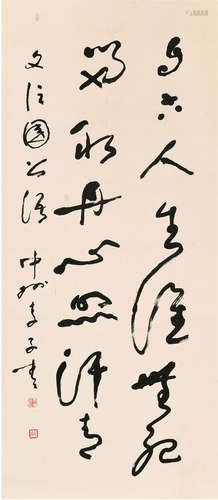 自古人生谁无死
留取丹心照汗青
文信國公語 中州李子青